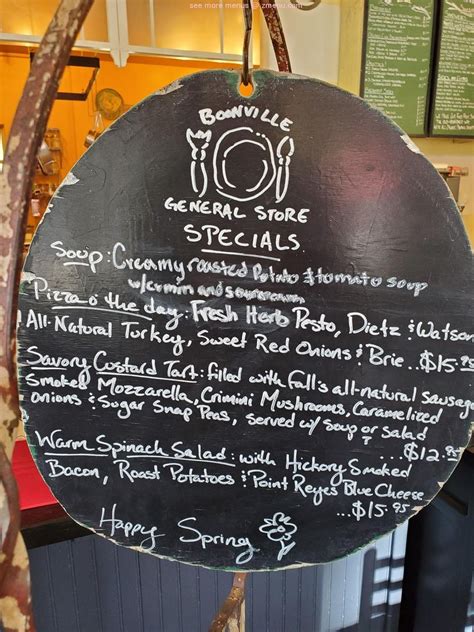 see more menus @ zmenu.com
BOONVILLE
GENERAL STORE
SPECIALS
Soup: Creamy roasted Potato & tomato soup
Pizza o' the day: Fresh Herb Pesto, Dietz & Watson
All-Natural Turkey, Sweet Red Onions & Brie...$15.95
Savory Custard Tart: filled with Fall's all-natural Sausage
Smoked Mozzarella, Crimini Mushrooms, Caramelized
onions & Sugar Snap Peas, served w/ soup or salad
...$12.95
Warm Spinach Salad: with Hickory Smoked
Bacon, Roast Potatoes & Point Reyes Blue Cheese
...$15.95
Happy Spring